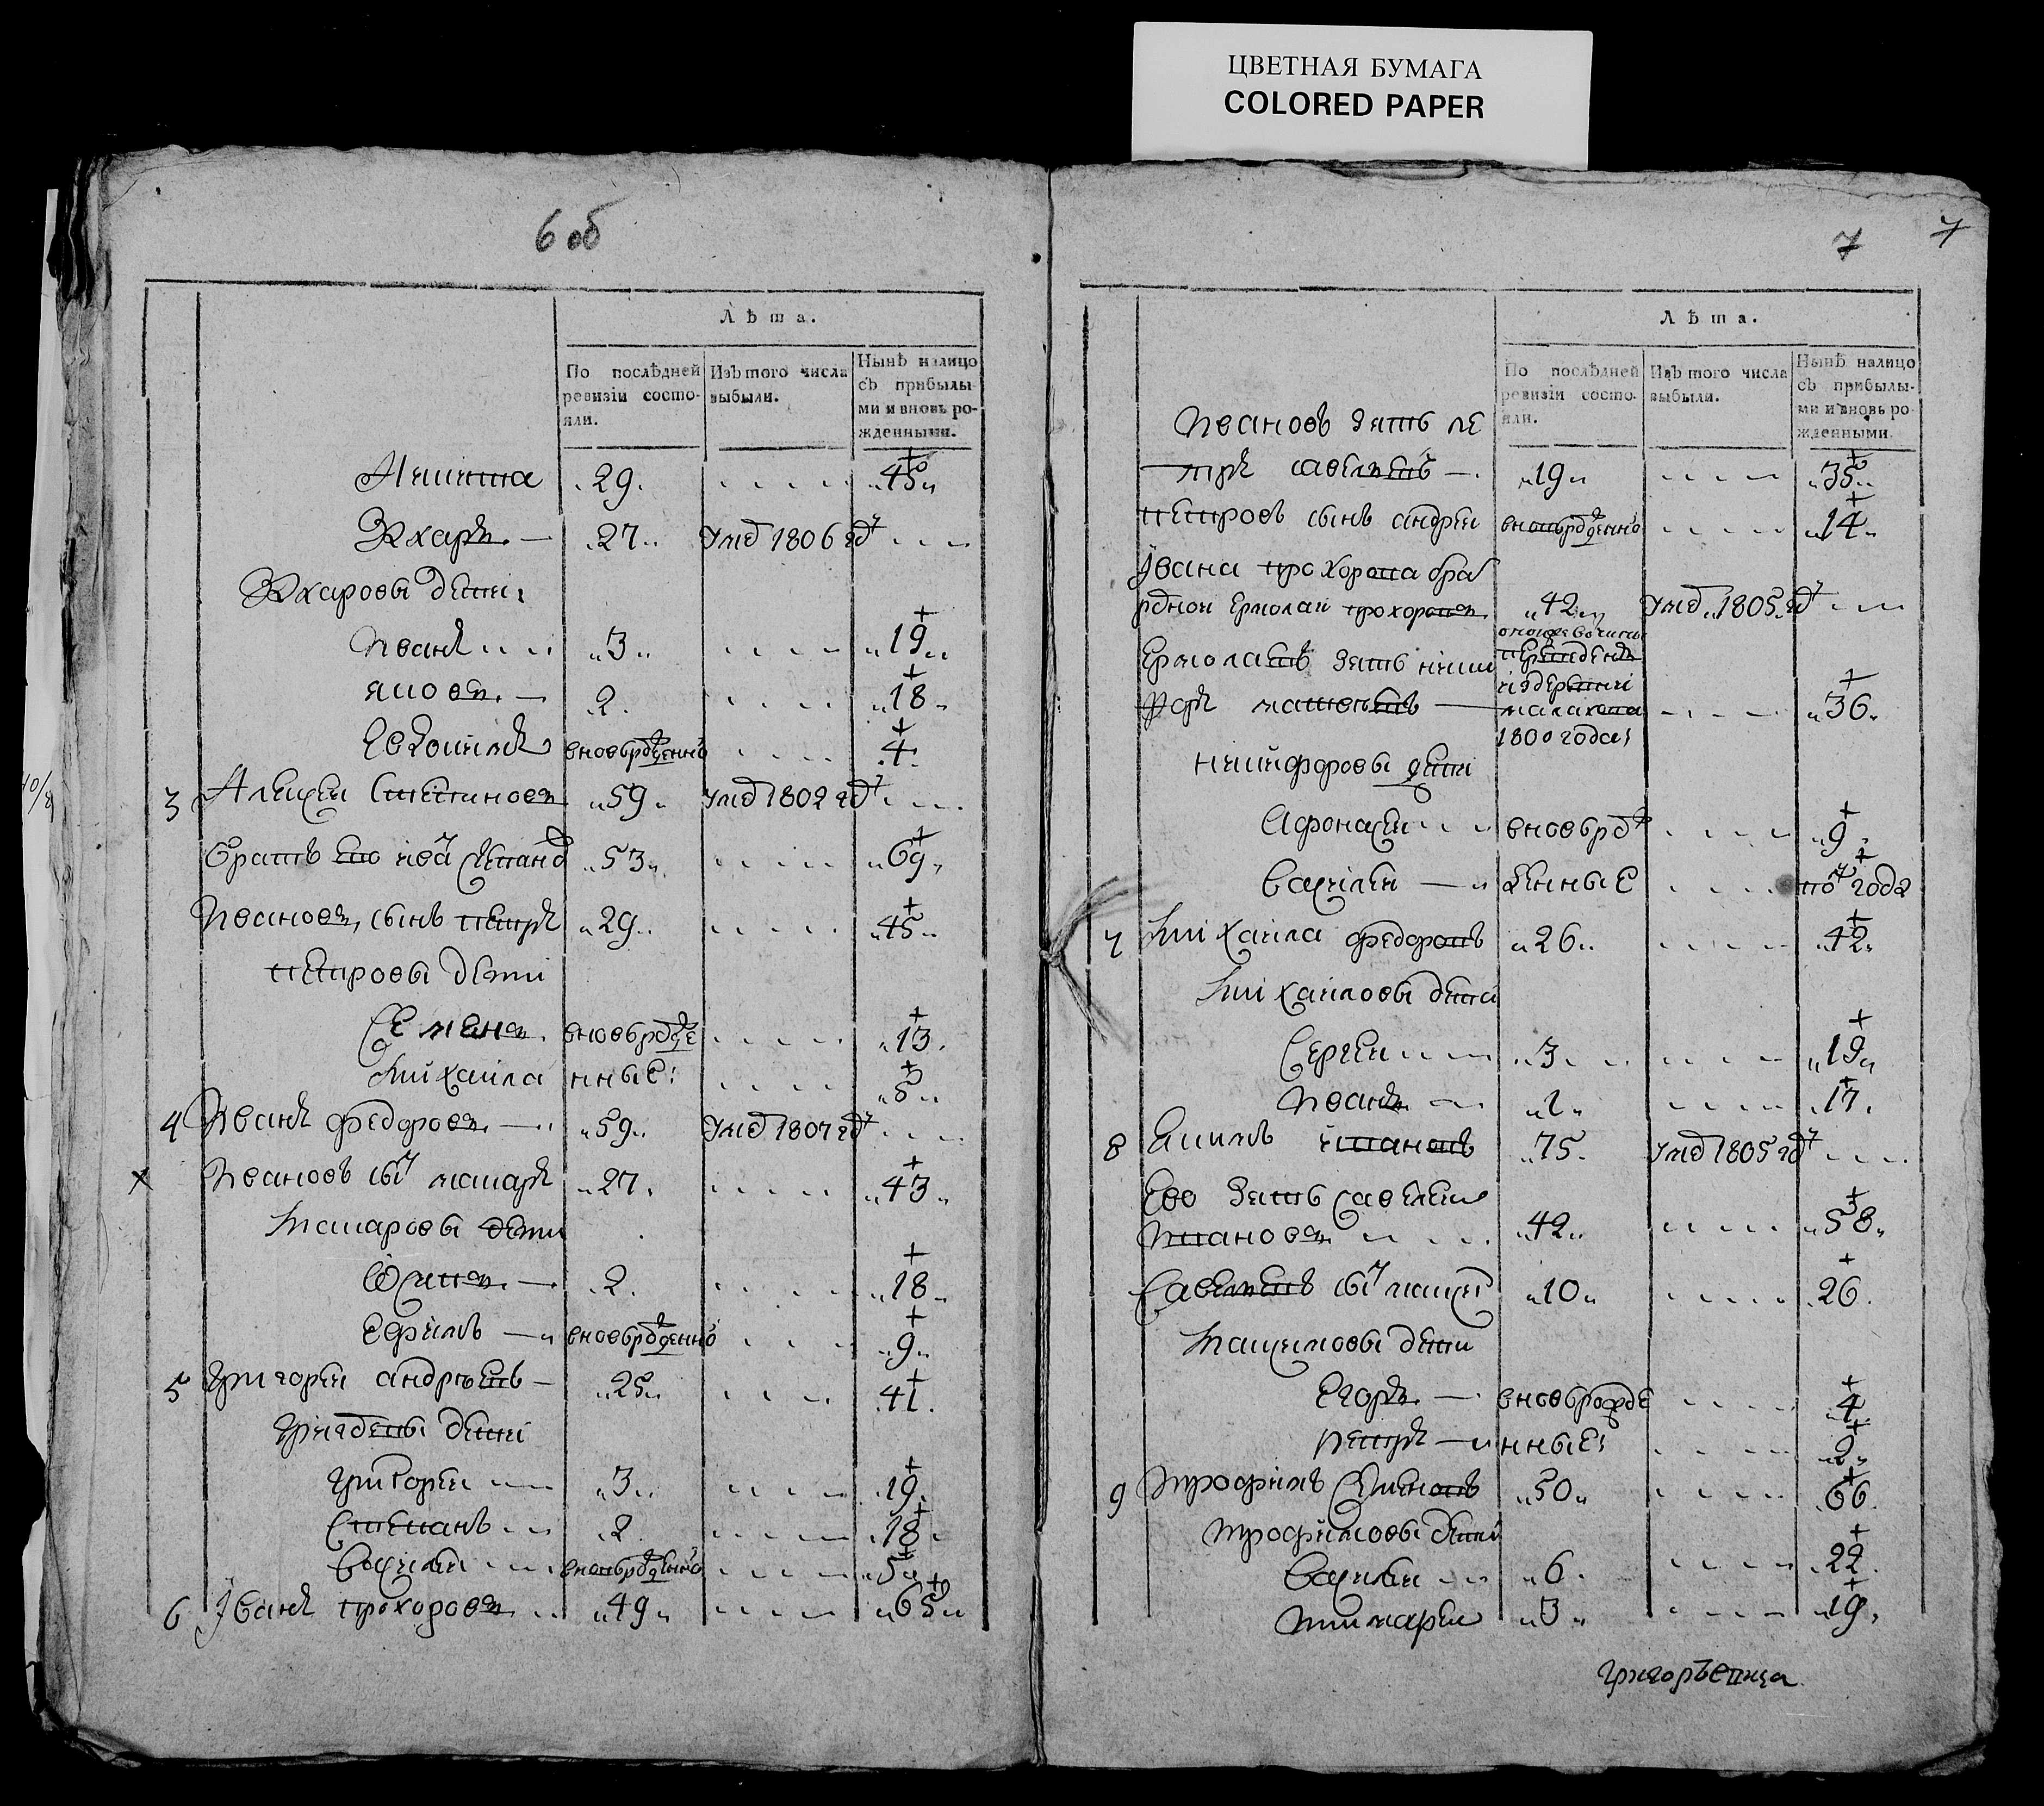 ЦВЕТНАЯ БУМАГА
COLORED PAPER
6 об
Лѣта.
По послѣдней ревизіи состояли.
Изъ того числа выбыли.
Нынѣ налицо съ прибылыми и вновь рожденными.
Никита 29 45
Захаръ 27 умр 1806 год
Захаровы дети
Иванъ 3 19
Яковъ 2 18
Евдокимъ вновьрожденно 4
3 Алексеи Степановъ 59 умр 1802 год
братъ ево 53 69
Ивановъ сынъ петръ 29 45
петровы дети
Семенъ вновьрожде 13
Михаила нные 5
4 Иванъ федоровъ 59 умр 1807 год
Ивановъ сын макаръ 27 43
Макаровы дети
Осипъ 2 18
Ефимъ вновьрожденно 9
5 Григореи андреевъ 25 41
дети
Григореи 3 19
Степанъ 2 18
Василеи вновьрожденно 5
6 Іванъ прохоровъ 49 65
7
7
Лѣта.
По послѣдней ревизіи состояли.
Изъ того числа выбыли.
Нынѣ налицо съ прибылыми и вновь рожденными.
Ивановъ зять пе
тръ савельевъ 19 35
петровъ сынъ андреи вновьрожденно 14
Івана прохорова брат
родной Ермолаи прохоровъ 42 умр 1805 год
Ермолаевъ зять ники
форъ матвеевъ 36
переведенъ
из деревни
малахова
1800 года
никифоровы дети
Афонасеи вновьрож 9
Василеи денные по года
7 Михаила федоровъ 26 42
Михаиловы дети
Сергеи 3 19
Иванъ 1 17
8 Якимъ 75 умр 1805 год
Ево зять савелеи
42 58
Савельевъ сын максим 10 26
Максимовы дети
Егоръ вновьрожде 4
Петръ нные 2
9 Трофимъ 50 66
трофимовы дети
Василеи 6 22
3 19